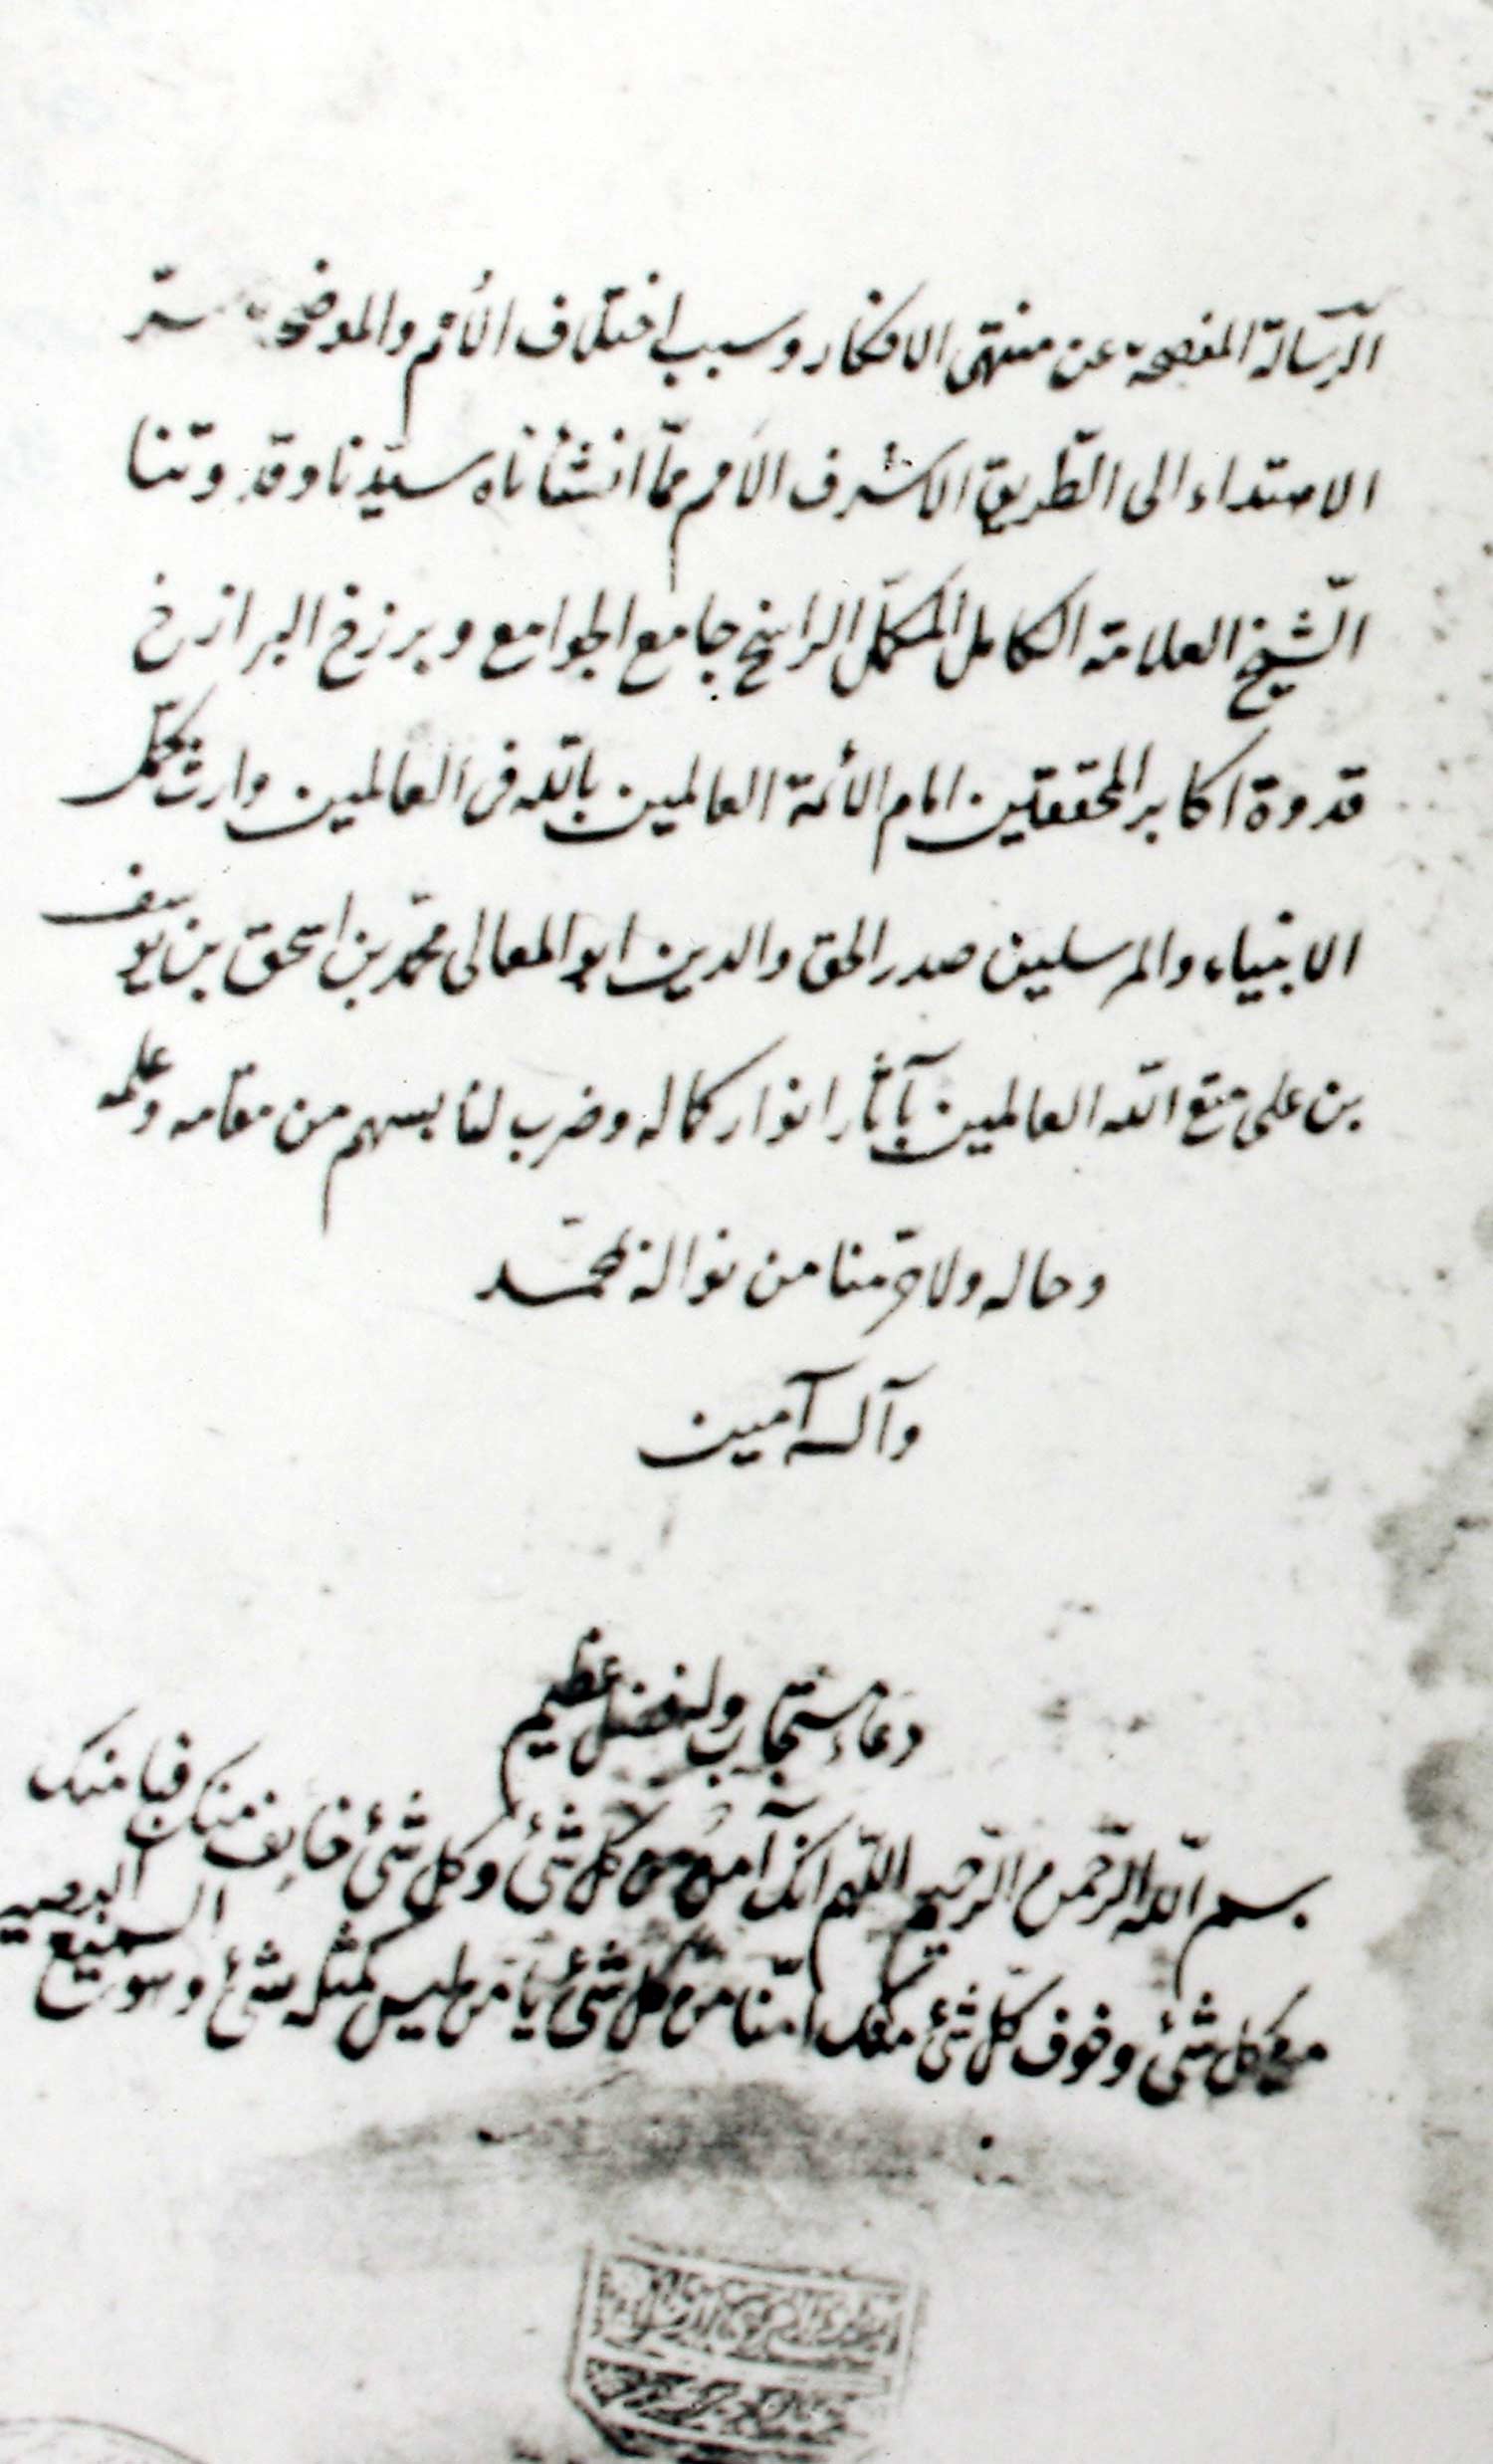 الرّسالة المفصحة عن منتهى الافكار وسبب اختلاف الأمم والموضحة سرّ
الاهتداء الى الطّريق الاشرف الأمم ممّا انشأناه سيّدنا وقدوتنا
الشّيخ العلامة الكامل المكمّل الراسخ جامع الجوامع وبرزخ البرازخ
قدوة اكابر المحققين امام الأئمة العالمين بالله فى العالمين وارث كمّل
الانبياء والمرسلين صدر الحق والدين ابو المعالى محمّد بن اسحق بن يوسف
بن على متع الله العالمين بآثار انوار كماله وضرب لنا بسهم من مقامه وعلمه
وحاله ولا حرّمنا من نواله بمحمّد
وآله آمين
دعاء مستجاب وله فضل عظيم
بسم الله الرّحمن الرّحيم اللّهم انك آمن من كل شئ وكل شئ خائف منك فبامنك
من كل شئ وخوف كلّ شئ منك امنّا من كل شئ يا من ليس كمثله شئ وهو السميع البصير